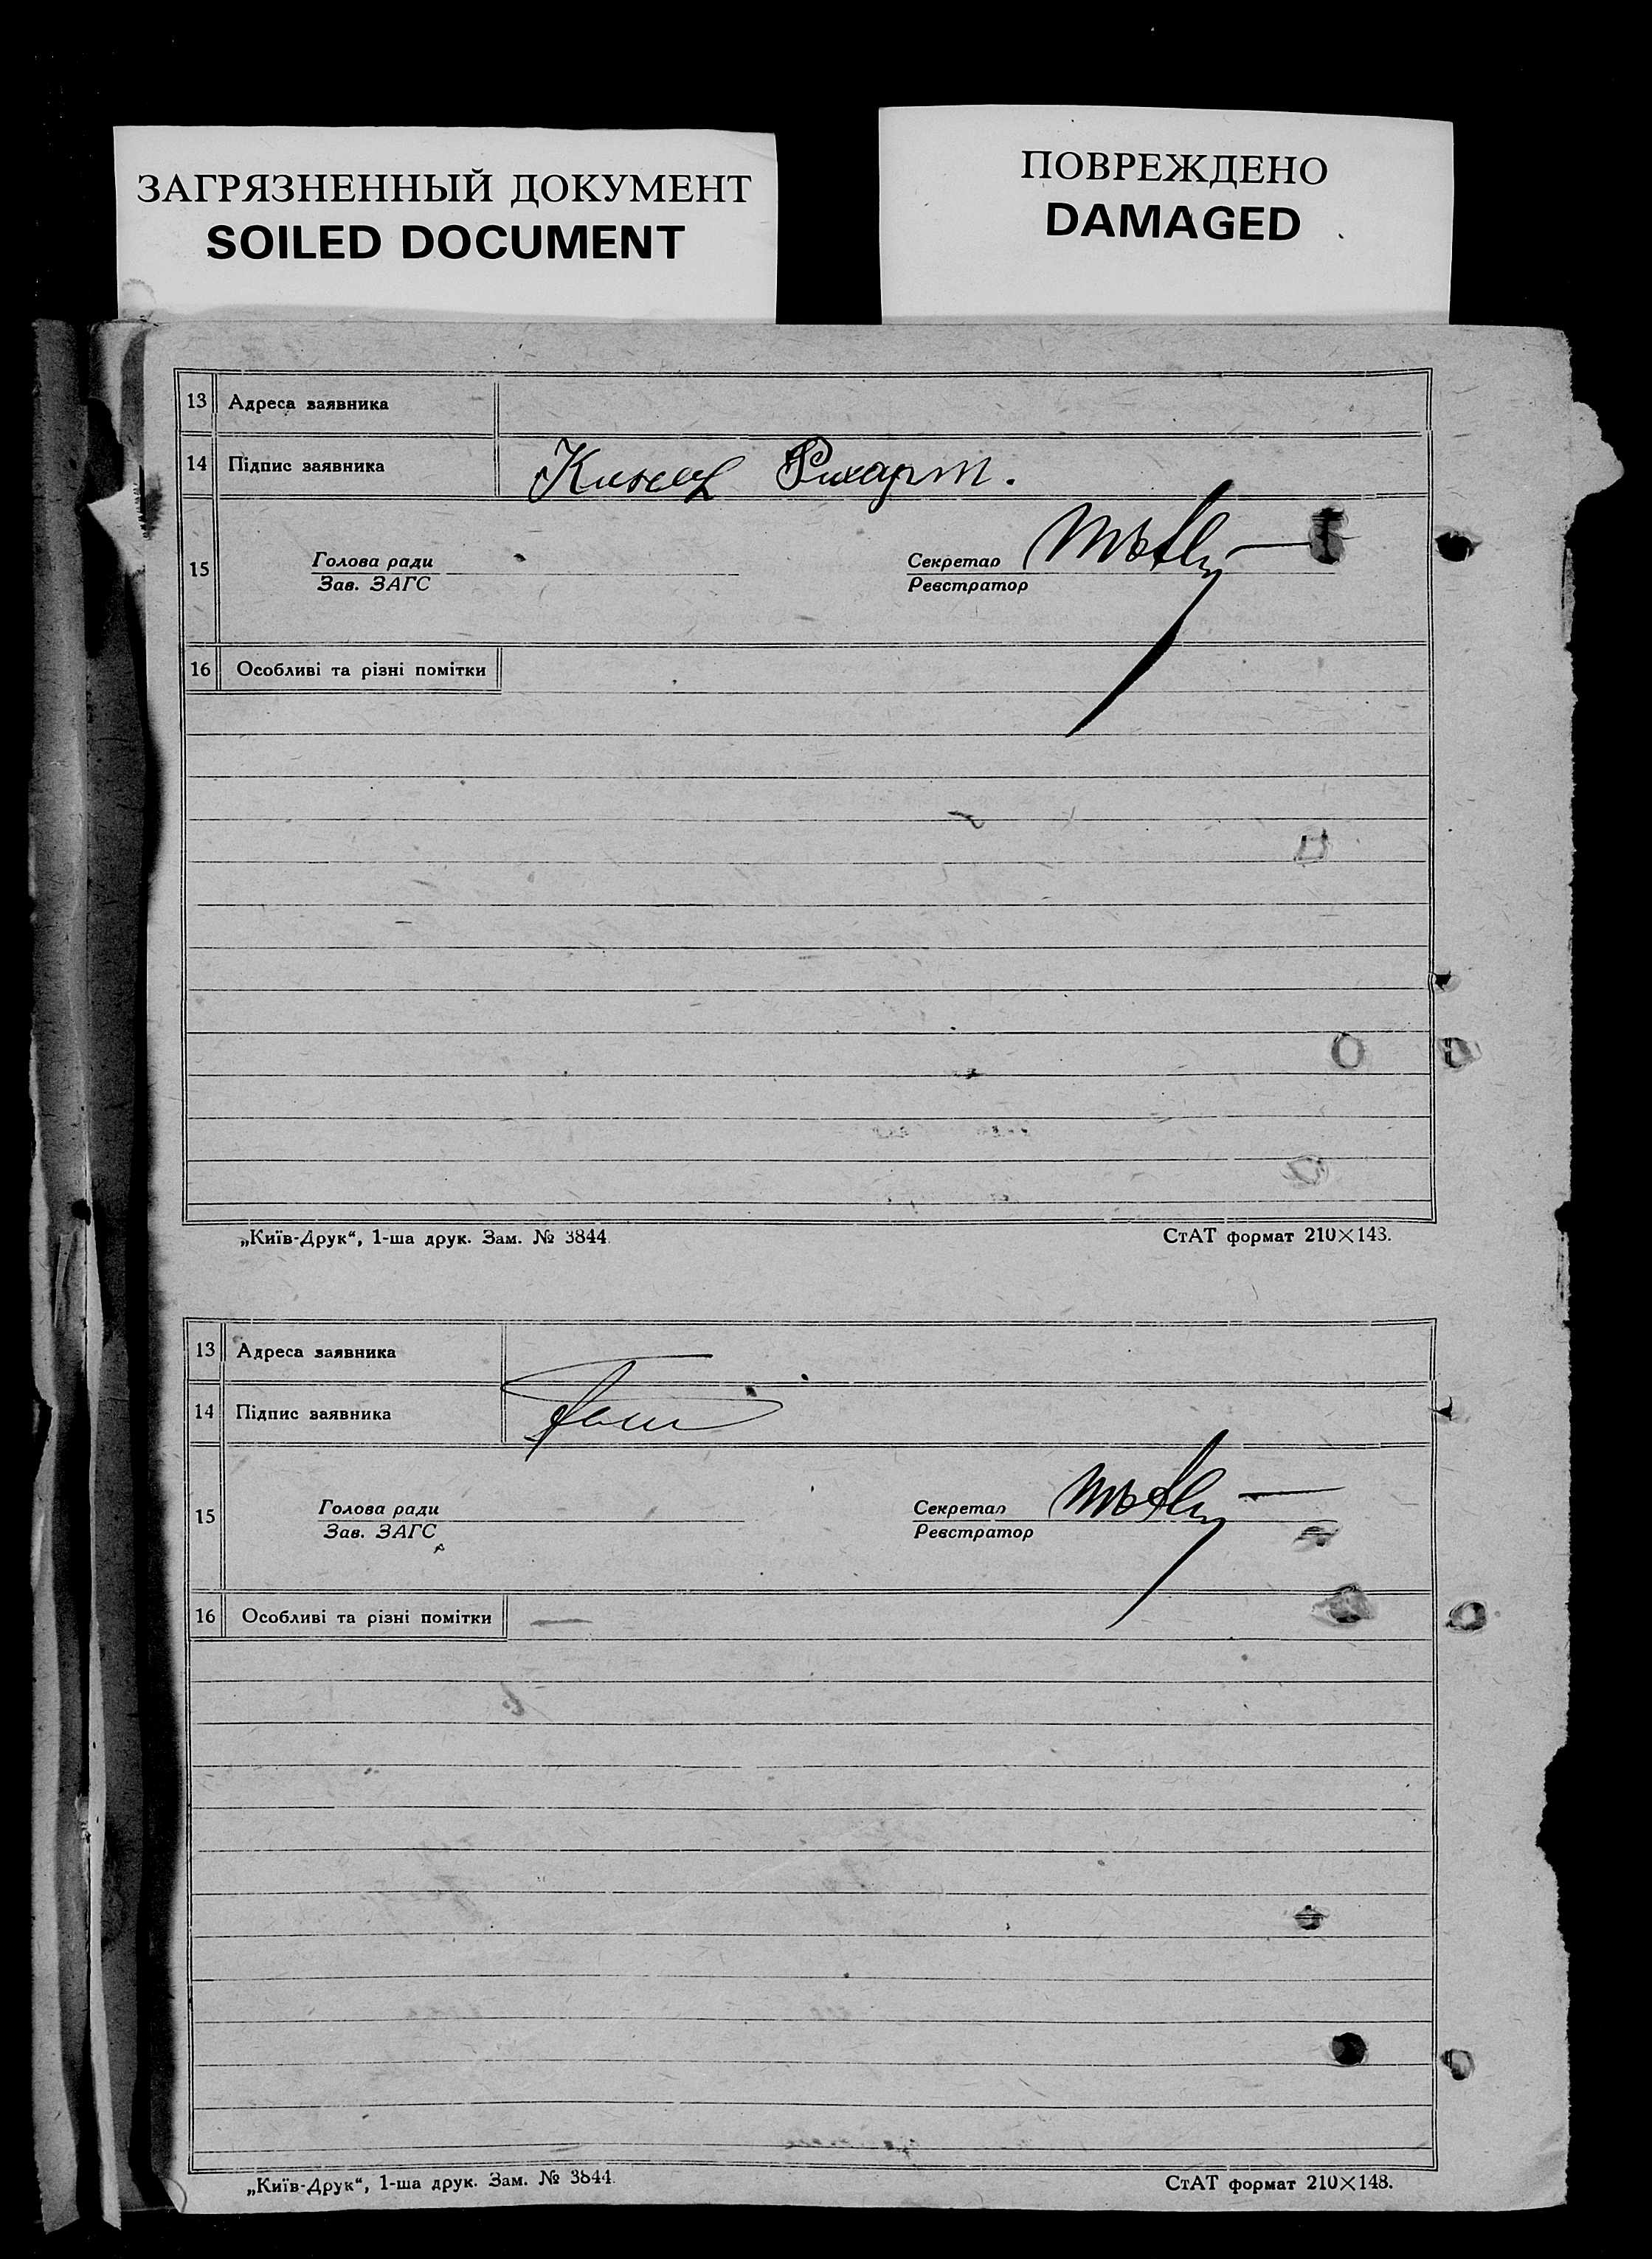 ЗАГРЯЗНЕННЫЙ ДОКУМЕНТ
SOILED DOCUMENT
ПОВРЕЖДЕНО
DAMAGED
13 Адреса заявника
14 Підпис заявника Рихарт.
15 Голова ради Секретар
Зав. ЗАГС Реєстратор
16 Особливі та різні помітки
„Київ-Друк“, 1-ша друк. Зам. № 3844. СтАТ формат 210×143.
13 Адреса заявника
14 Підпис заявника
15 Голова ради Секретар
Зав. ЗАГС Реєстратор
16 Особливі та різні помітки
„Київ-Друк“, 1-ша друк. Зам. № 3844. СтАТ формат 210×148.